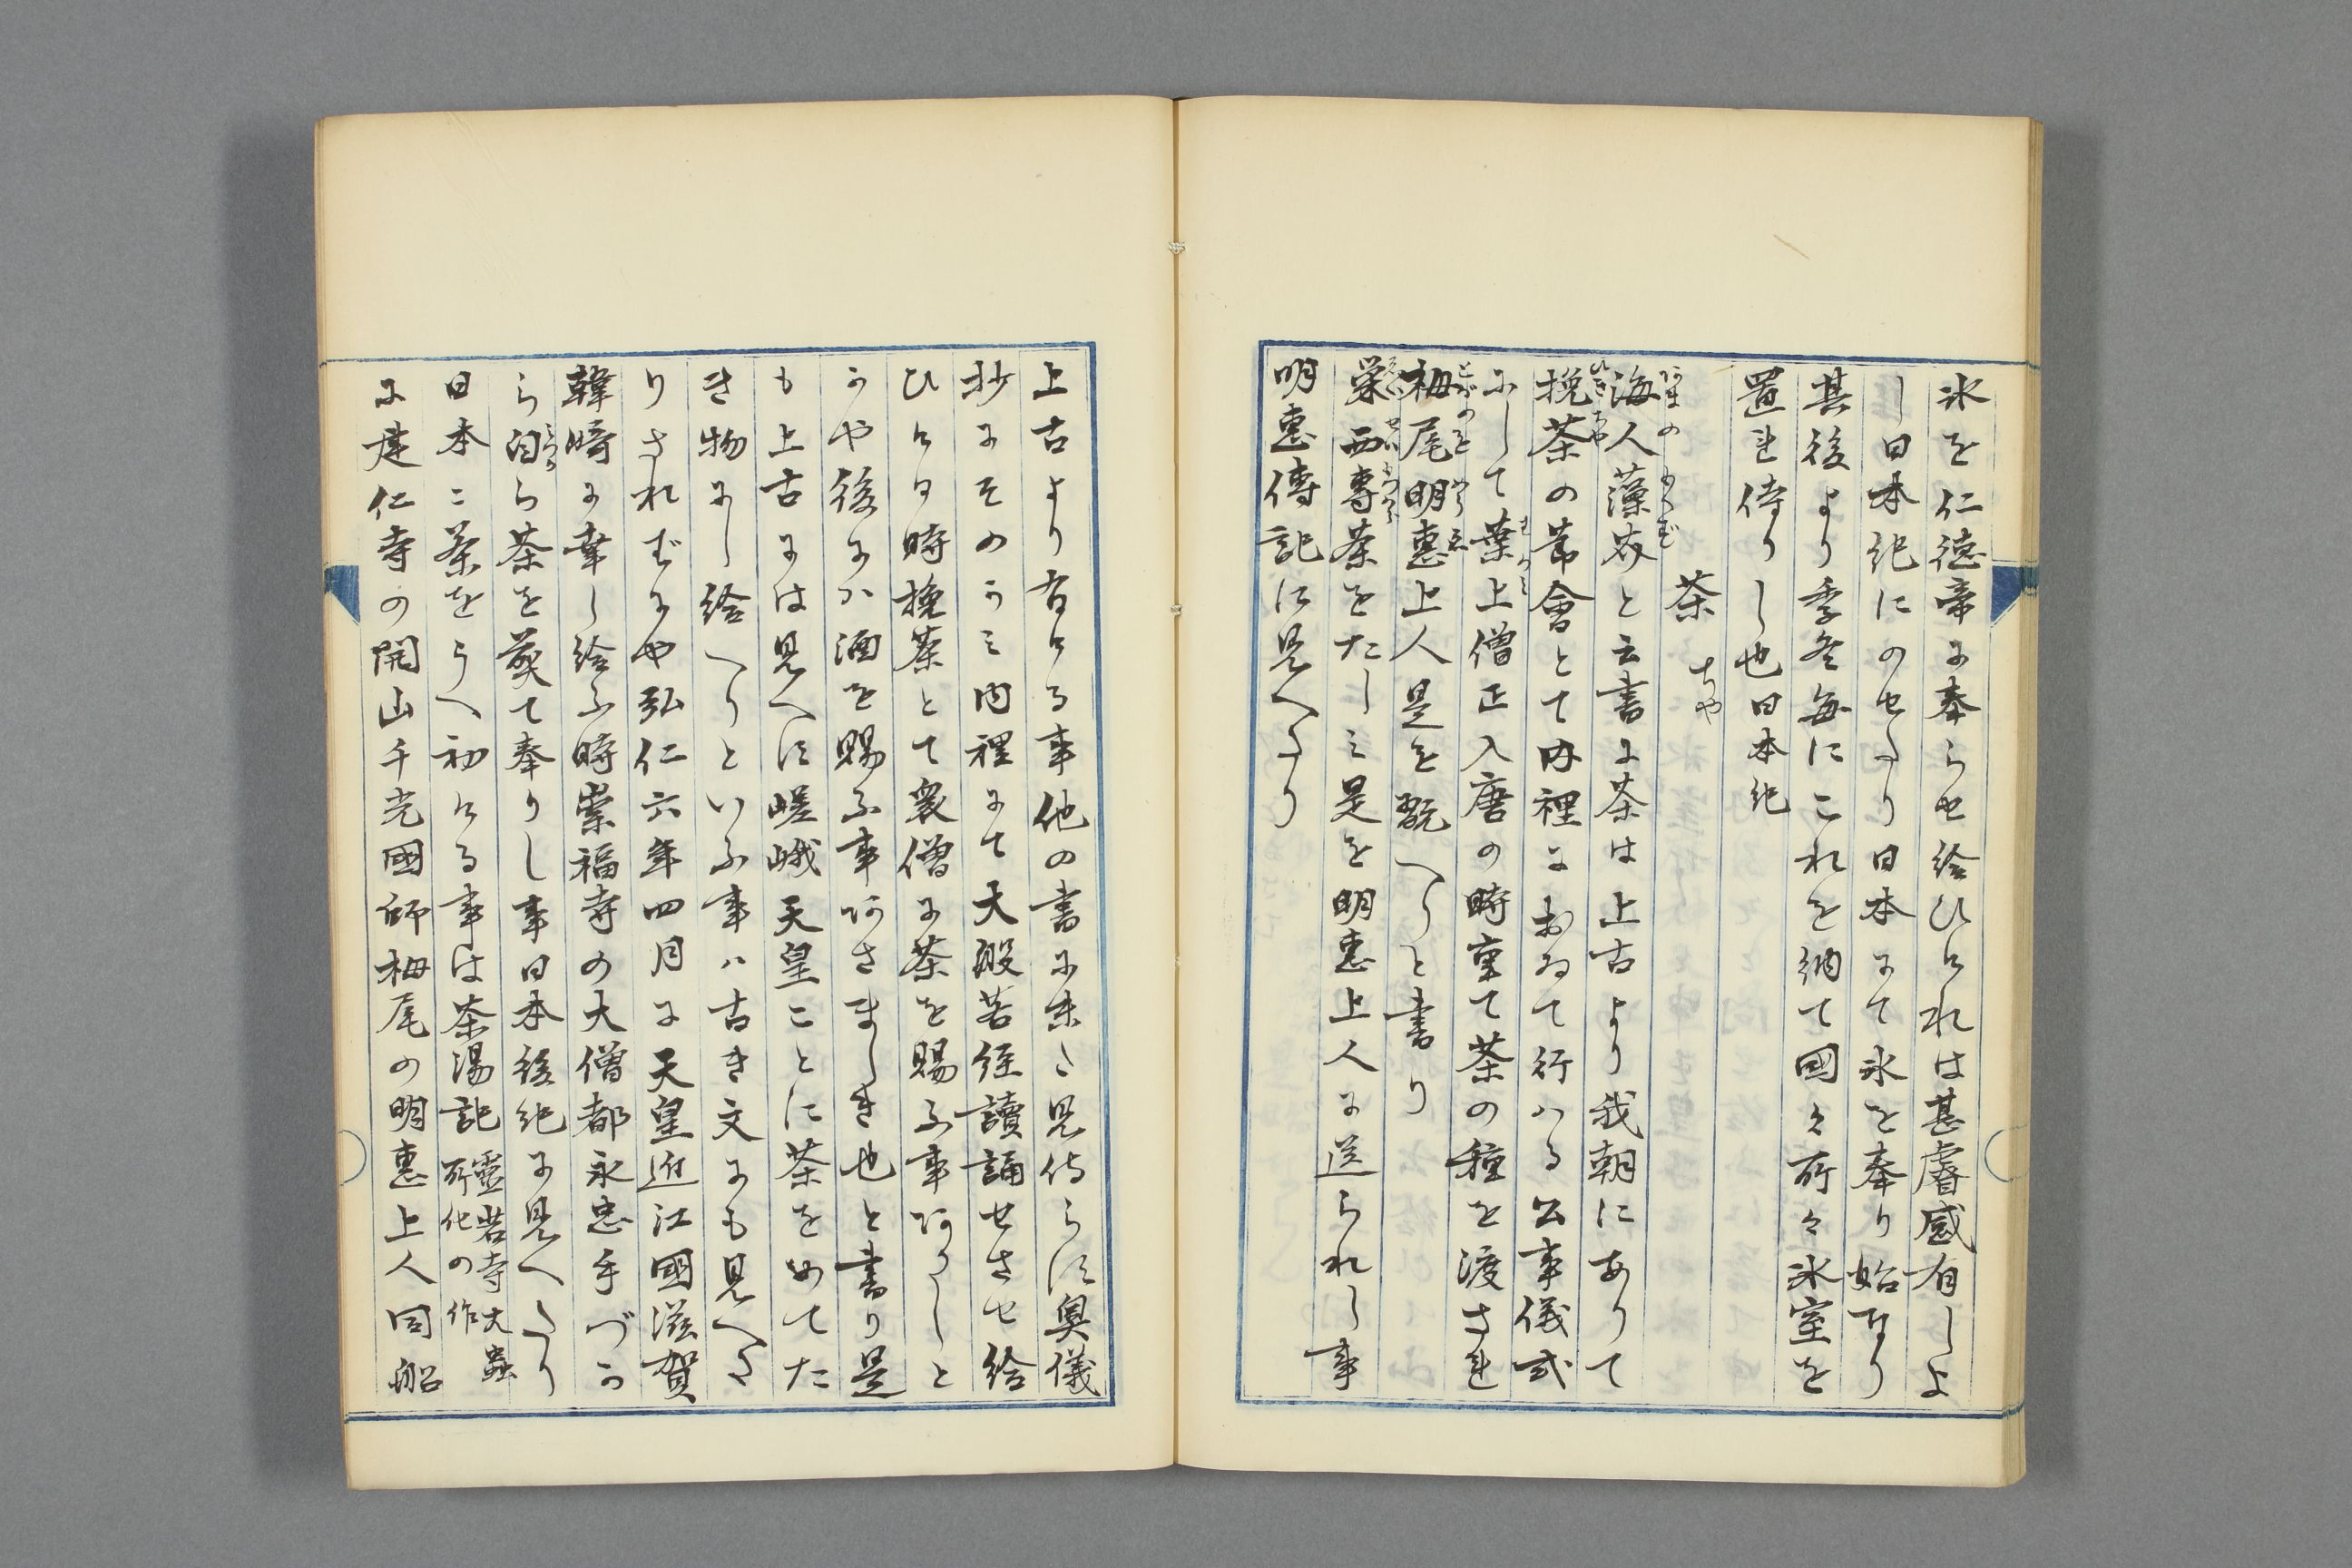 氷を仁徳帝に奉らせ給ひけれは甚膚感有しよ
し日本紀にのせたり日本にて氷を奉り始なり
其後より季冬毎にこれを納て國々所々氷室を
置れ侍りし也日本紀
茶 ちや
海人藻芥と云書に茶は上古より我朝にありて
挽茶の節會とて内裡におゐて行ハる公事儀式
にして葉上僧正入唐の時重て茶の種を渡され
栂尾明惠上人是を翫へりと書り
榮西專茶をたしミ是を明惠上人に送られし事
明惠傳記に見へたり
上古より有ける事他の書にまた見侍らす奥儀
抄にそのかミ内裡にて大般若経讀誦せさせ給
ひける時挽茶とて衆僧に茶を賜ふ事ありしと
かや後にハ酒を賜ふ事あさましき也と書り是
も上古には見へす嵯峨天皇ことに茶をめてた
き物にし給へりといふ事ハ古き文にも見へた
りされバにや弘仁六年四月に天皇近江國滋賀
韓﨑に幸し給ふ時崇福寺の大僧都永忠手づか
ら自ら茶を煎て奉りし事日本後紀に見へたり
日本ニ茶をうへ初ける事は茶湯記靈岩寺大蟲所化の作
に建仁寺の開山千光國師栂尾の明惠上人同船